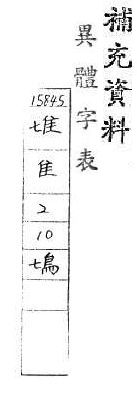 補充資料
異體字表
15845
隹
2
10